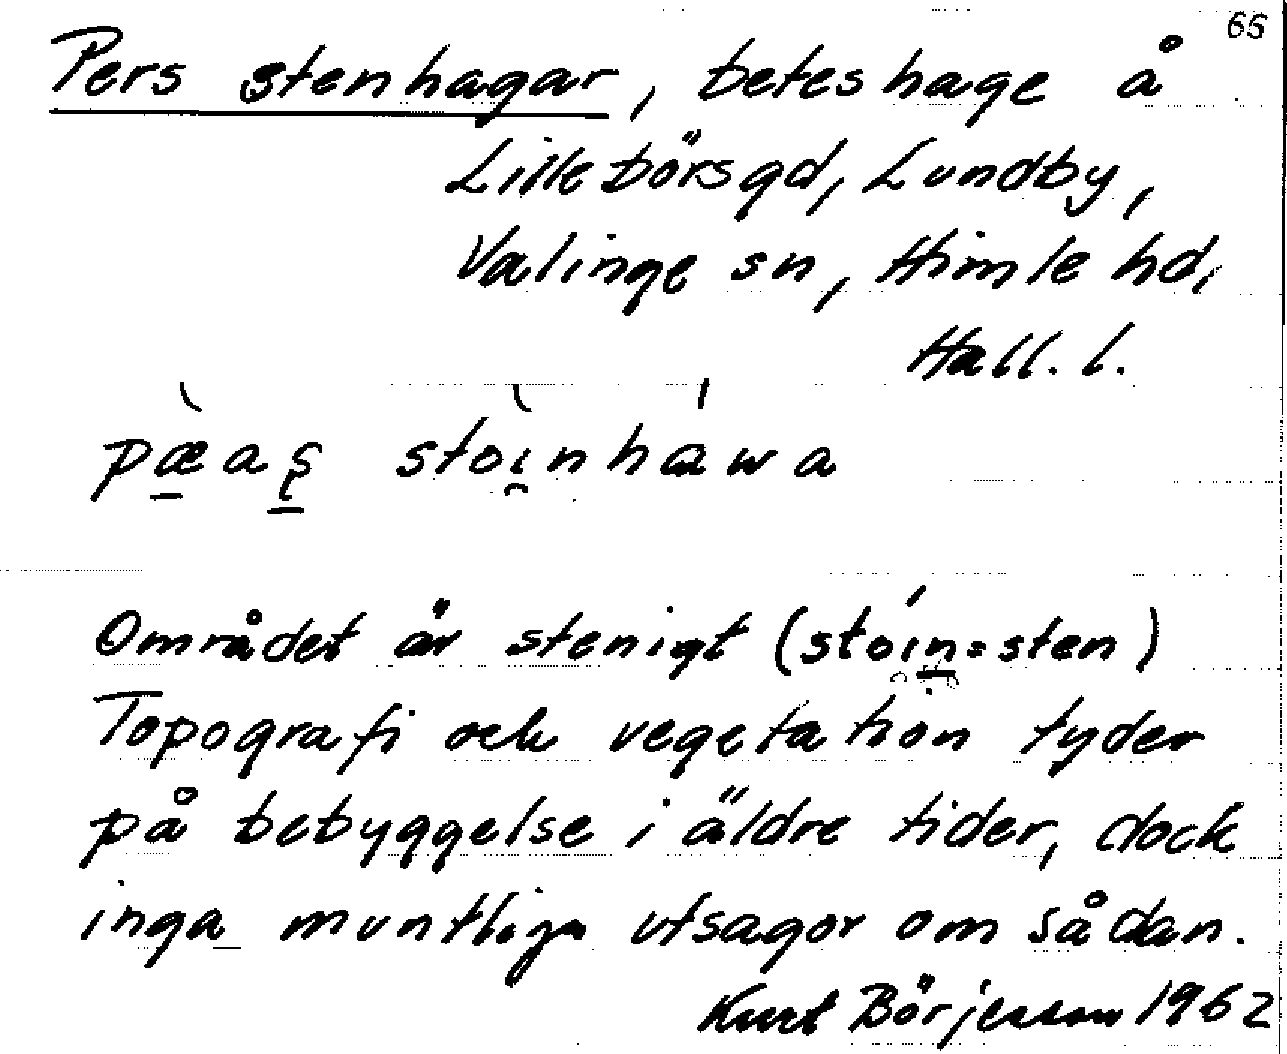 65
Pers stenhagar, beteshage å
Lillebörsgd, Lundby,
Valinge sn, Himle hd,
Hall. l.
pæ̀aş stòi̯nháwa
Området är stenigt (stói̯n=sten)
Topografi och vegetation tyder
på bebyggelse i äldre tider, dock
inga muntliga utsagor om sådan.
Kurt Börjesson 1962